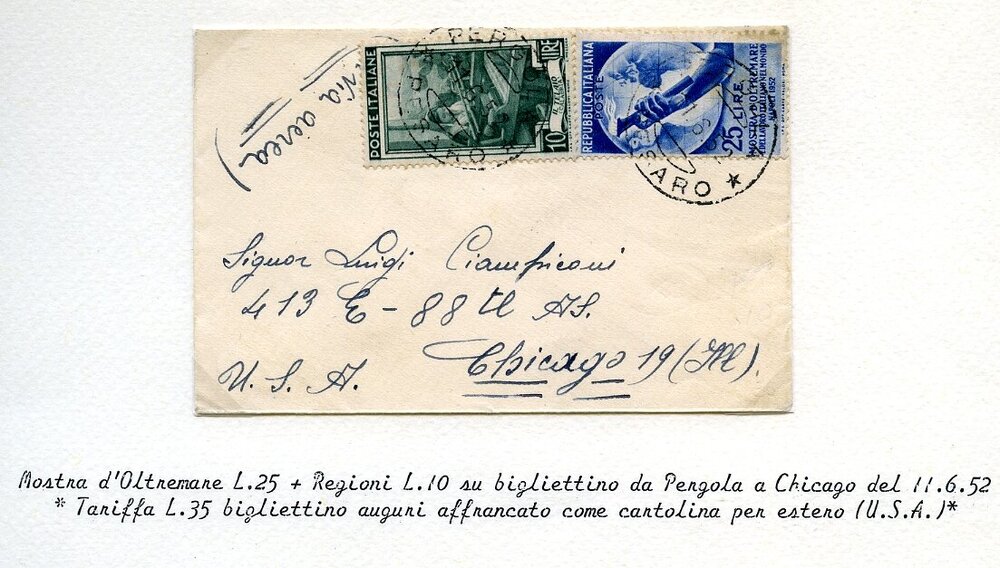 via aerea
POSTE ITALIANE
10
LIRE
REPUBBLICA ITALIANA
POSTE
25 LIRE
MOSTRA D'OLTREMARE
E DEL LAVORO ITALIANO NEL MONDO
NAPOLI 1952
PERGO
SARO ★
Signor Luigi Ciampiconi
413 E - 88 tl AS.
Chicago 19 (Ill).
U. S. A.
Mostra d'Oltremare L.25 + Regioni L.10 su bigliettino da Pergola a Chicago del 11.6.52
* Tariffa L.35 bigliettino auguri affrancato come cartolina per estero (U.S.A.)*